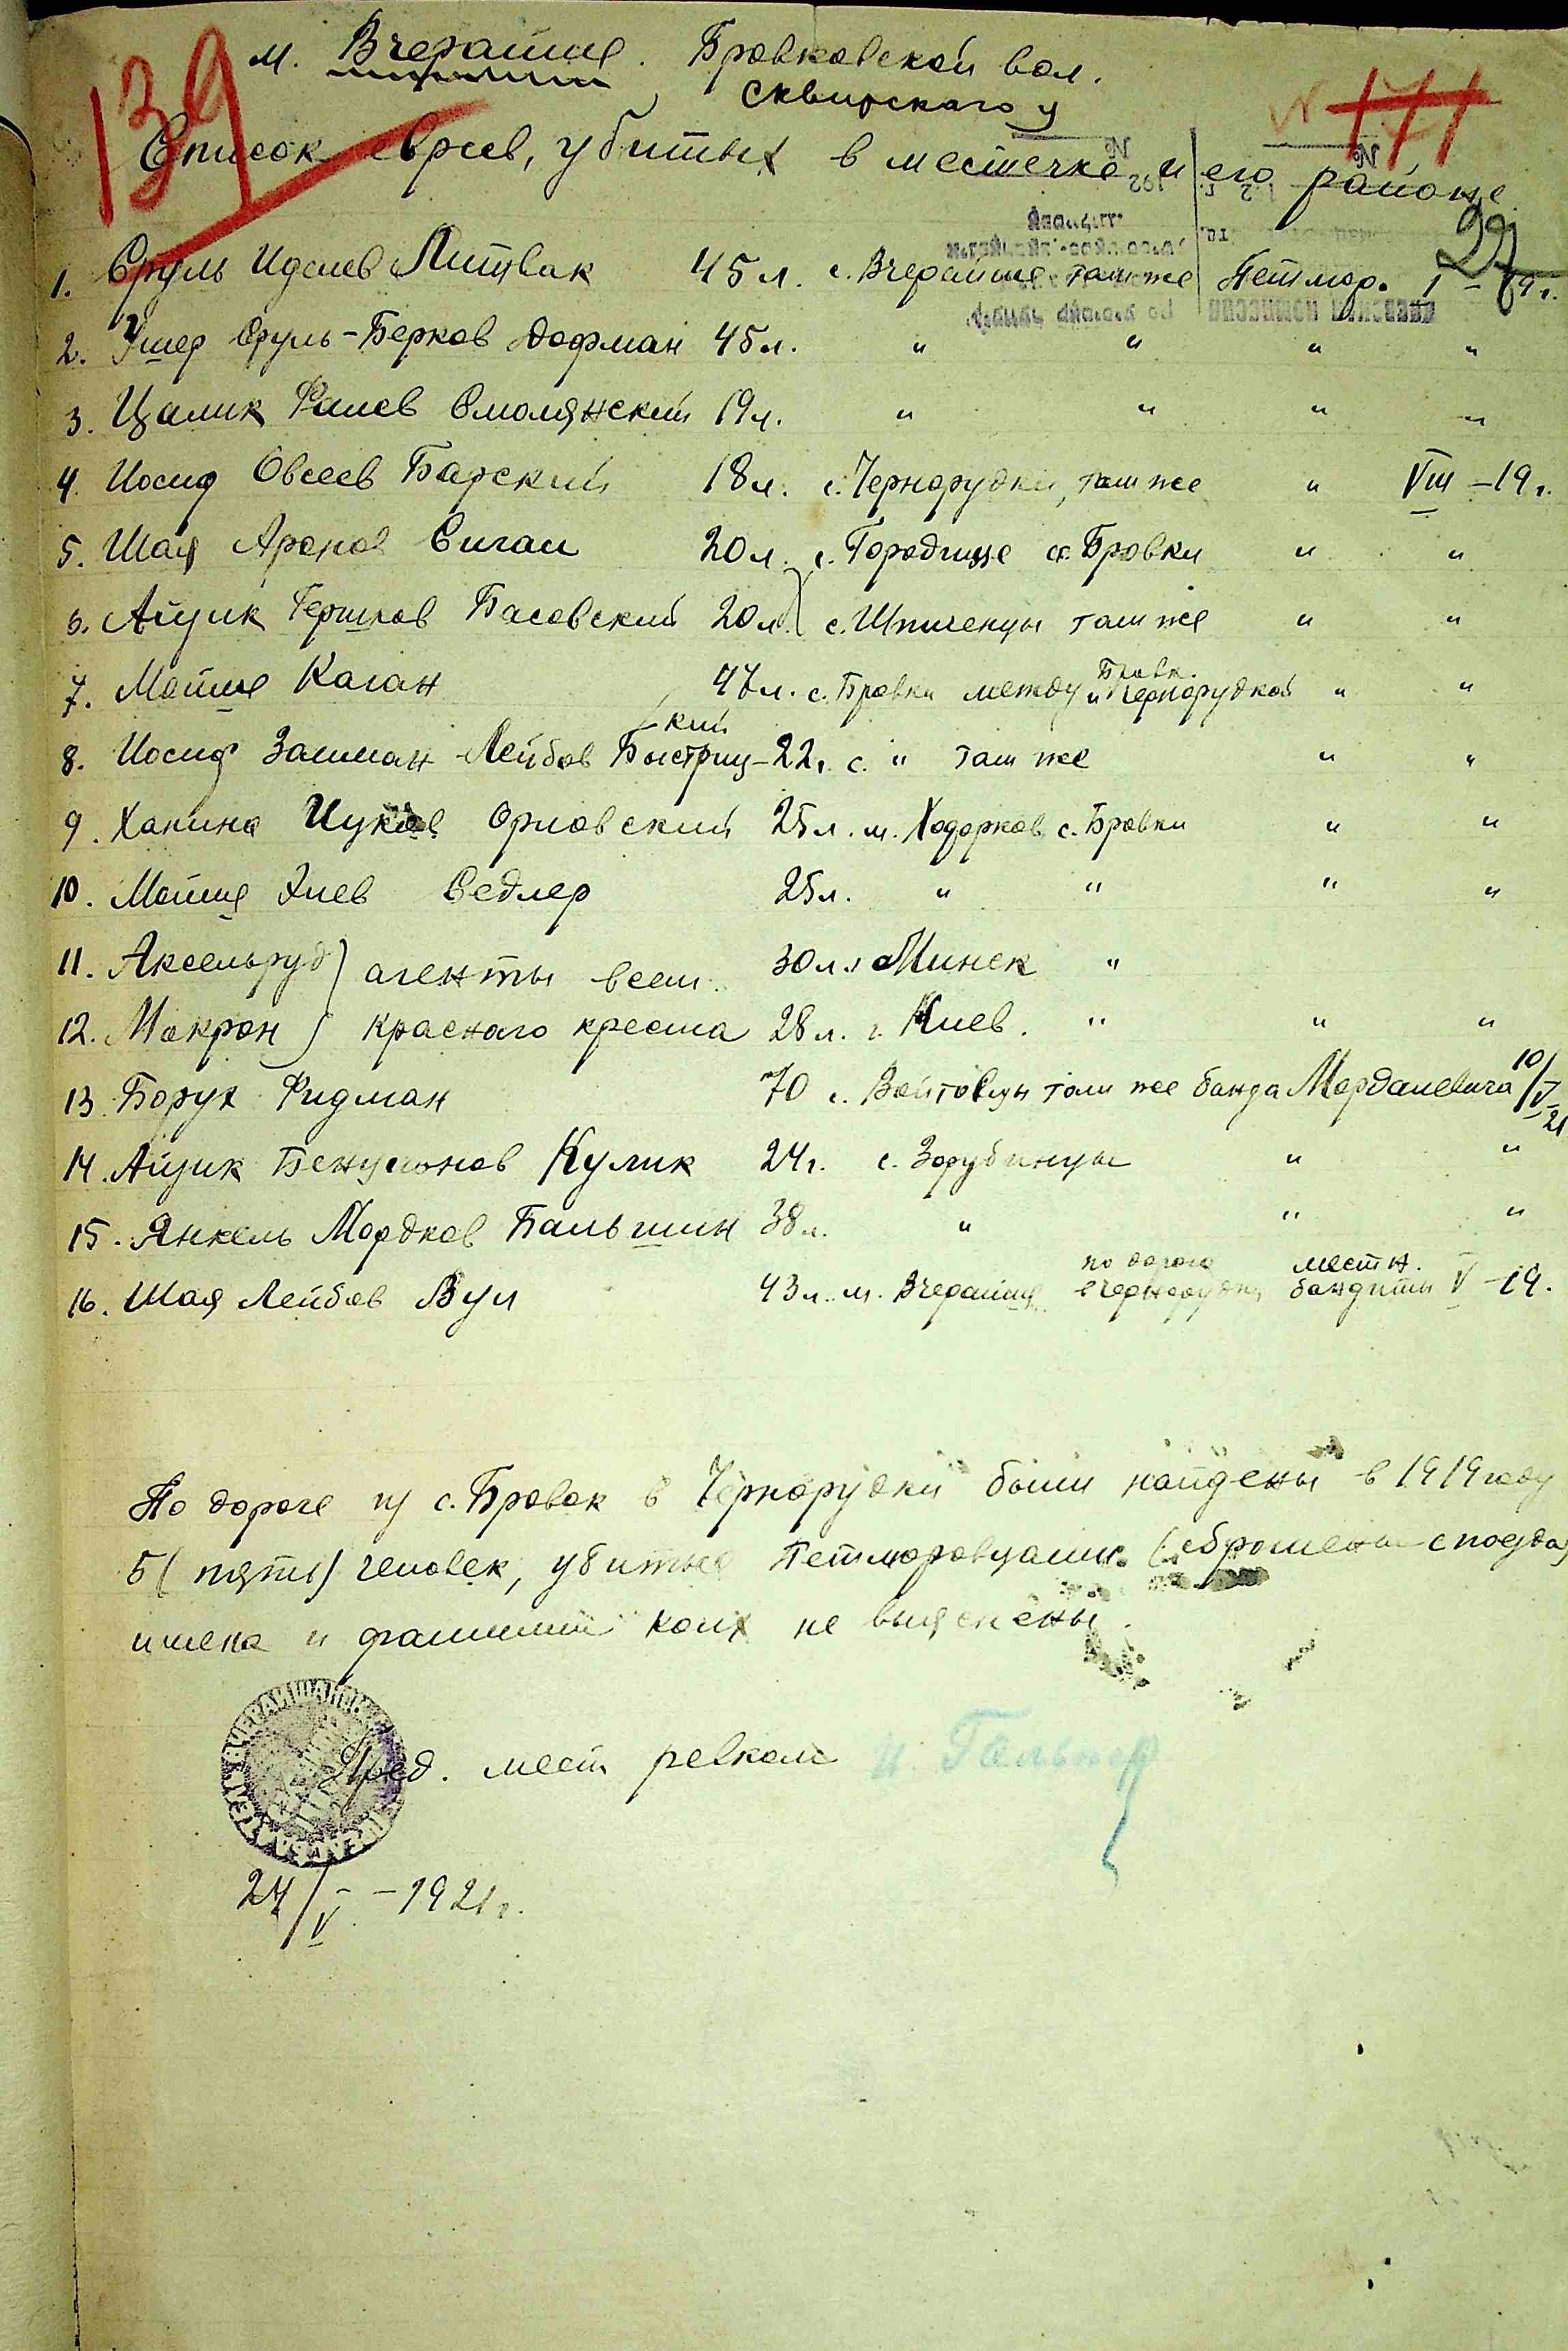 м. Вчерайше. Бровковской вол.
Сквирскаго у
139
171
Список евреев, убитых в местечке и его районе
22
1. Сруль Иделев Литвак 45 л. с. Вчерайше там же Петлюр. I – 19 г.
2. Ушер Сруль-Берков Дофман 45 л. " " " "
3. Цалик Фалев Смолянский 19 л. " " " "
4. Иосиф Овсеев Барский 18 л. с. Чернорудки, там же " VIII – 19 г.
5. Шая Аронов Сигал 20 л. с. Городище ст. Бровки " "
6. Айзик Гершков Басовский 20 л. с. Шпиченцы там же " "
7. Мойше Каган 47 л. с. Бровки между Бровк. и Чернорудкой " "
8. Иосиф Залман Лейбов Быстрицкий – 22 г. с. " там же " "
9. Ханина Ицков Орловский 25 л. м. Ходорков с. Бровки " "
10. Мойше Хиев Седлер 25 л. " " " "
11. Аксельруд } агенты всем. 30 л. г. Минск "
12. Макрон } краснаго креста 28 л. г. Киев. " " "
13. Борух Фидман 70 с. Войтовцы там же банда Мордалевича 10/V 21
14. Айзик Бенционов Кулик 24 г. с. Зарубинцы " "
15. Янкель Мордков Бальшин 38 л. " " "
16. Шая Лейбов Вул 43 л. м. Вчерайше по дороге в Чернорудку местн. бандиты V – 19.
По дороге из с. Бровок в Чернорудки были найдены в 1919 году
5 (пять) человек, убитые Петлюровцами (сброшены с поезда)
имена и фамилии коих не выяснены.
Пред. мест ревкома
24/V – 1921 г.